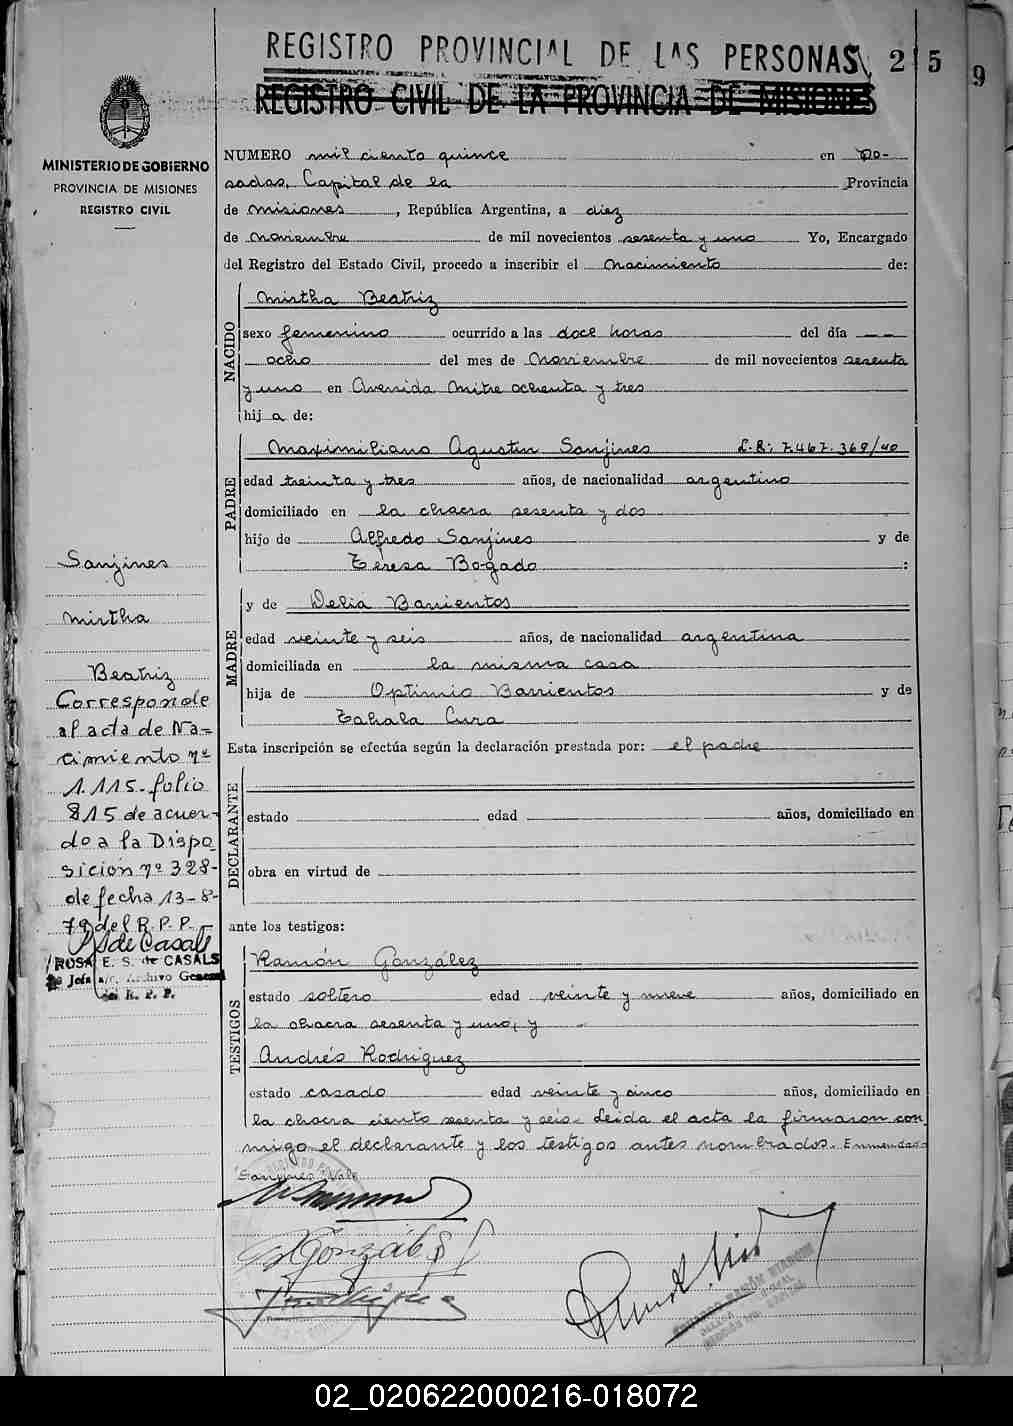 REGISTRO PROVINCIAL DE LAS PERSONAS
259
REGISTRO CIVIL DE LA PROVINCIA DE MISIONES
MINISTERIO DE GOBIERNO
PROVINCIA DE MISIONES
REGISTRO CIVIL
NUMERO mil ciento quince en Po-
sadas, Capital de la Provincia
de misiones, República Argentina, a diez
de noviembre de mil novecientos sesenta y uno Yo, Encargado
del Registro del Estado Civil, procedo a inscribir el nacimiento de:
NACIDO
Mirtha Beatriz
sexo femenino ocurrido a las doce horas del día --
ocho del mes de noviembre de mil novecientos sesenta
y uno en Avenida Mitre ochenta y tres
hij a de:
PADRE
Maximiliano Agustin Sanjines L.E: 7.467.369/40
edad treinta y tres años, de nacionalidad argentino
domiciliado en la chacra sesenta y dos
hijo de Alfredo Sanjines y de
Teresa Bogado :
MADRE
y de Delia Barrientos
edad veinte y seis años, de nacionalidad argentina
domiciliada en la misma casa
hija de Optimio Barrientos y de
Cura
Esta inscripción se efectúa según la declaración prestada por: el padre
DECLARANTE
estado edad años, domiciliado en
obra en virtud de
ante los testigos:
TESTIGOS
Ramón González
estado soltero edad veinte y nueve años, domiciliado en
la chacra sesenta y uno, y
Andrés Rodriguez
estado casado edad veinte y cinco años, domiciliado en
la chacra ciento sesenta y seis. Leida el acta la firmaron con
migo el declarante y los testigos antes nombrados. Enmendado
Sanjines Vale
Sanjines
Mirtha
Beatriz
Corresponde
al acta de Na=
cimiento nº
1.115-folio
815 de acuer-
do a la Dispo
sicion nº 328-
de fecha 13-8-
79 del R.P.P.
S de Casals
ROSA E. S. de CASALS
Jefa a/c. Archivo General
del R. P. P.
González
02_020622000216-018072